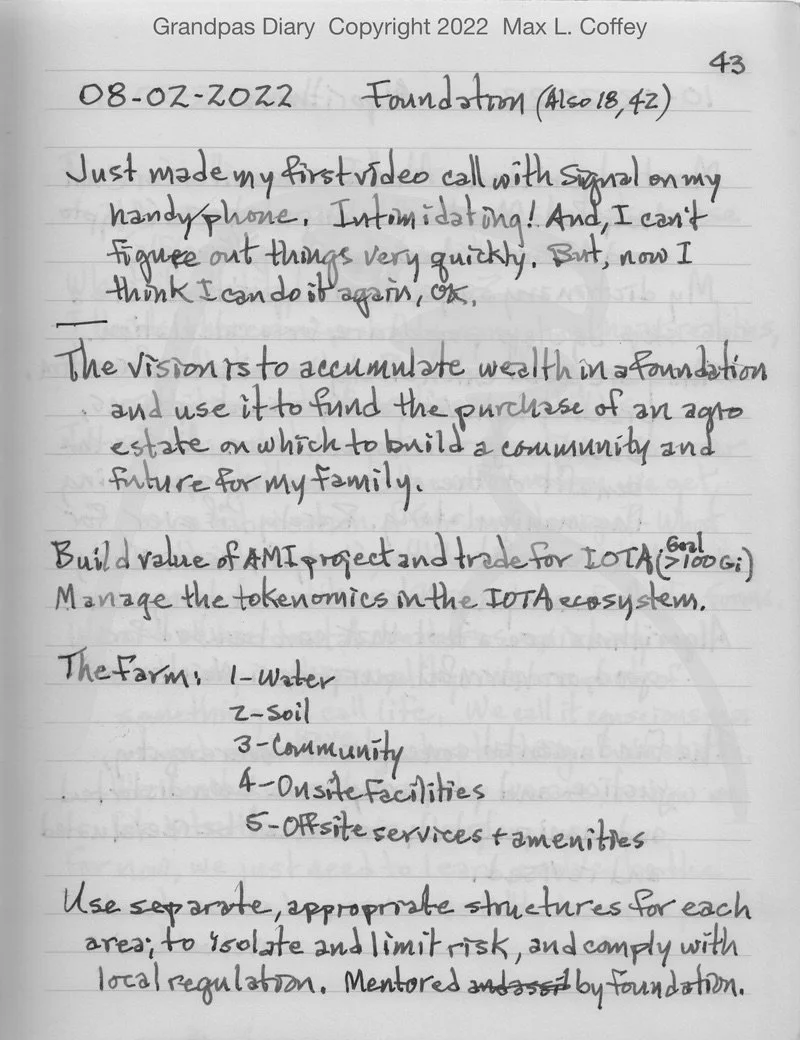 Grandpas Diary Copyright 2022 Max L. Coffey
43
08-02-2022 Foundation (Also 18, 42)
Just made my first video call with Signal on my
handy/phone. Intimidating! And, I can't
figure out things very quickly. But, now I
think I can do it again, OK.
The vision is to accumulate wealth in a foundation
and use it to fund the purchase of an agro
estate on which to build a community and
future for my family.
Build value of AMI project and trade for IOTA (Goal >100 Gi)
Manage the tokenomics in the IOTA ecosystem.
The Farm: 1-Water
2-Soil
3-Community
4-Onsite Facilities
5-Offsite services + amenities
Use separate, appropriate structures for each
area; to isolate and limit risk, and comply with
local regulation. Mentored by foundation.